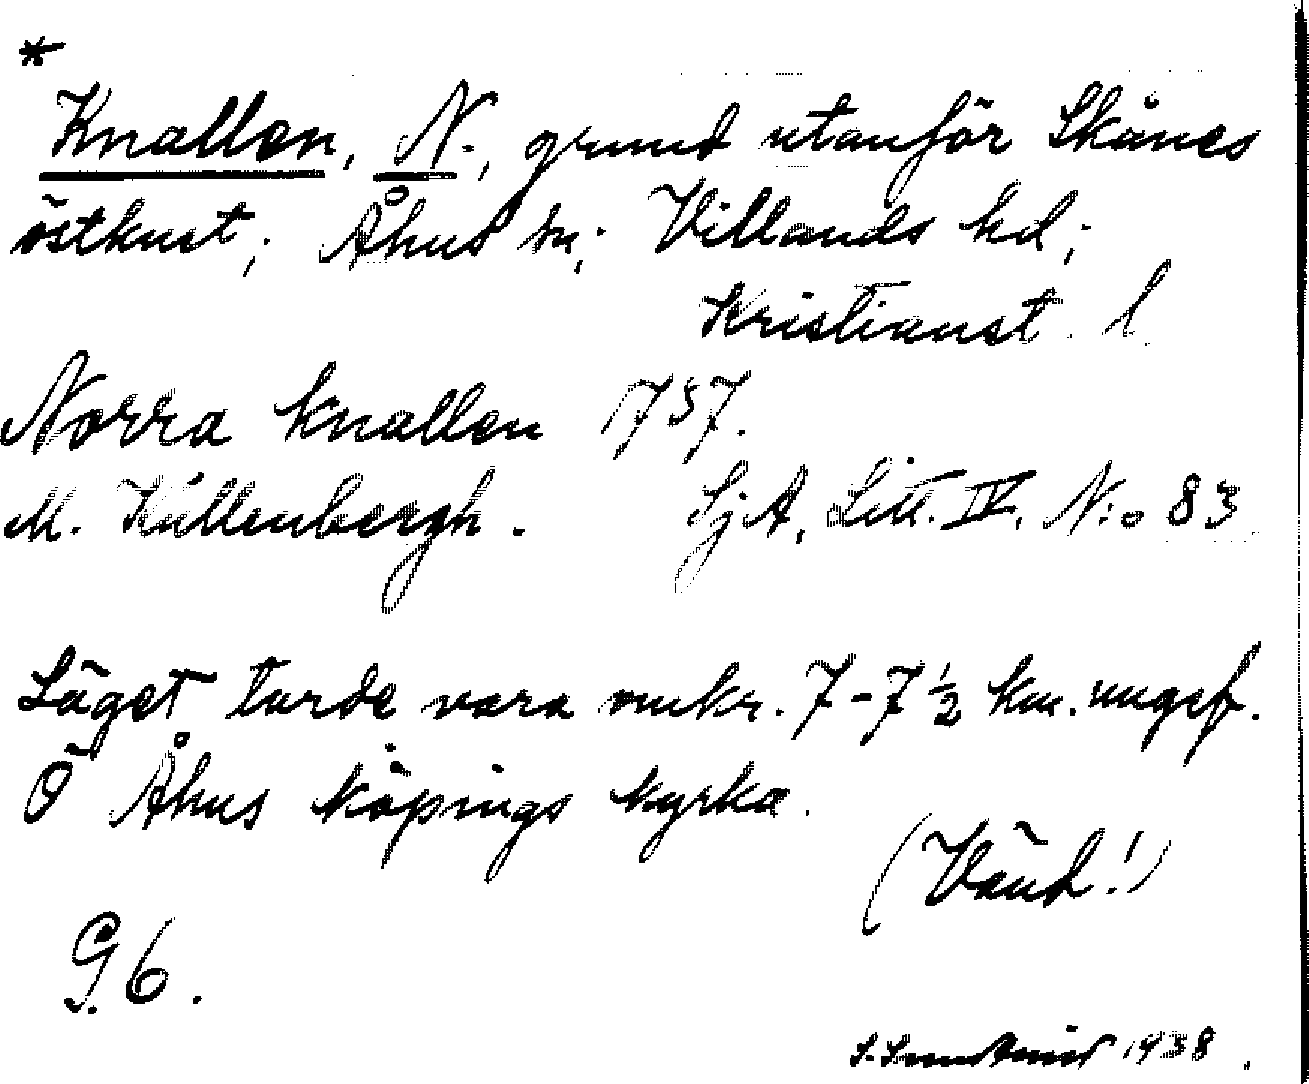 *
Knallen, N., grund utanför Skånes
östkust; Åhus sn; Villands hd;
Kristianst. l.
Norra Knallen 1757.
M. Küllenbergh. SjA, Litt. IV, N:o 83
Läget torde vara omkr. 7-7½ km. ungef.
Ö Åhus köpings kyrka.
(Vänd!)
G. 6.
1938.